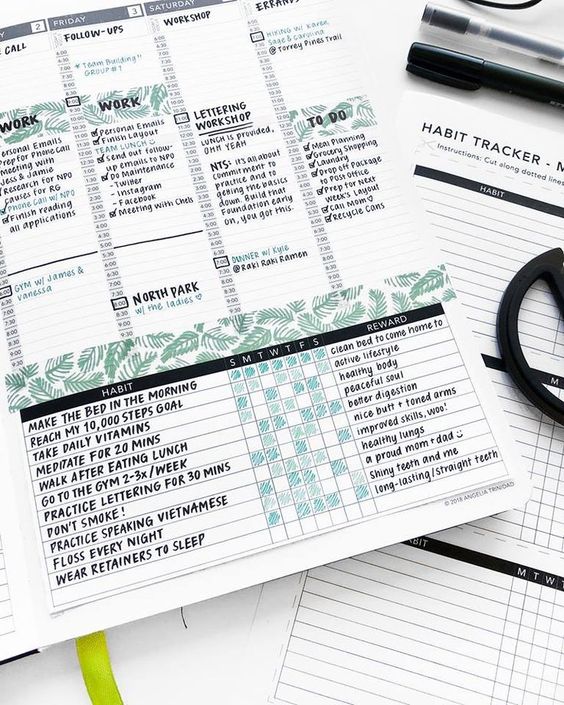 2
FRIDAY
3
SATURDAY
CALL
FOLLOW-UPS
*Team Building*
GROUP #1
WORKSHOP
ERRANDS
HIKING W/ Karen,
Sage & Carolina
@Torrey Pines Trail
WORK
Personal Emails
Prep for Phone Call
Meeting with
Jes & Jamie
Research for NPO
Causes for RG
Phone Call w/ NPO
Finish reading
all applications
GYM w/ James &
Vanessa
WORK
Personal Emails
Finish Layout
TEAM LUNCH ♡
Send out follow-
up emails to NPO
Do Maintenance
- Twitter
- Instagram
- Facebook
Meeting with Chels
NORTH PARK
w/ the ladies ♡
LETTERING
WORKSHOP
LUNCH is provided,
OHH YEAH
NTS: it's all about
commitment to
practice and to
getting the basics
down. Build the
Foundation early
on, you got this.
DINNER w/ Kyle
@Raki Raki Ramen
TO DO
Meal Planning
Grocery Shopping
Laundry
Drop off Package
to Post Office
Prep for Next
Week's Layout
Call Mom ♡
Recycle Cans
HABIT
S M T W T F S
REWARD
MAKE THE BED IN THE MORNING
Clean bed to come home to
REACH MY 10,000 STEPS GOAL
active lifestyle
TAKE DAILY VITAMINS
healthy body
MEDITATE FOR 20 MINS
peaceful soul
WALK AFTER EATING LUNCH
better digestion
GO TO THE GYM 2-3x/WEEK
nice butt + toned arms
PRACTICE LETTERING FOR 30 MINS
improved skills, woo!
DON'T SMOKE!
healthy lungs
PRACTICE SPEAKING VIETNAMESE
a proud mom + dad
FLOSS EVERY NIGHT
Shiny teeth and me
WEAR RETAINERS TO SLEEP
long-lasting/straight teeth
© 2018 ANGELIA TRINIDAD
HABIT TRACKER - M
Instructions: Cut along dotted lines
HABIT
HABIT
M T W T